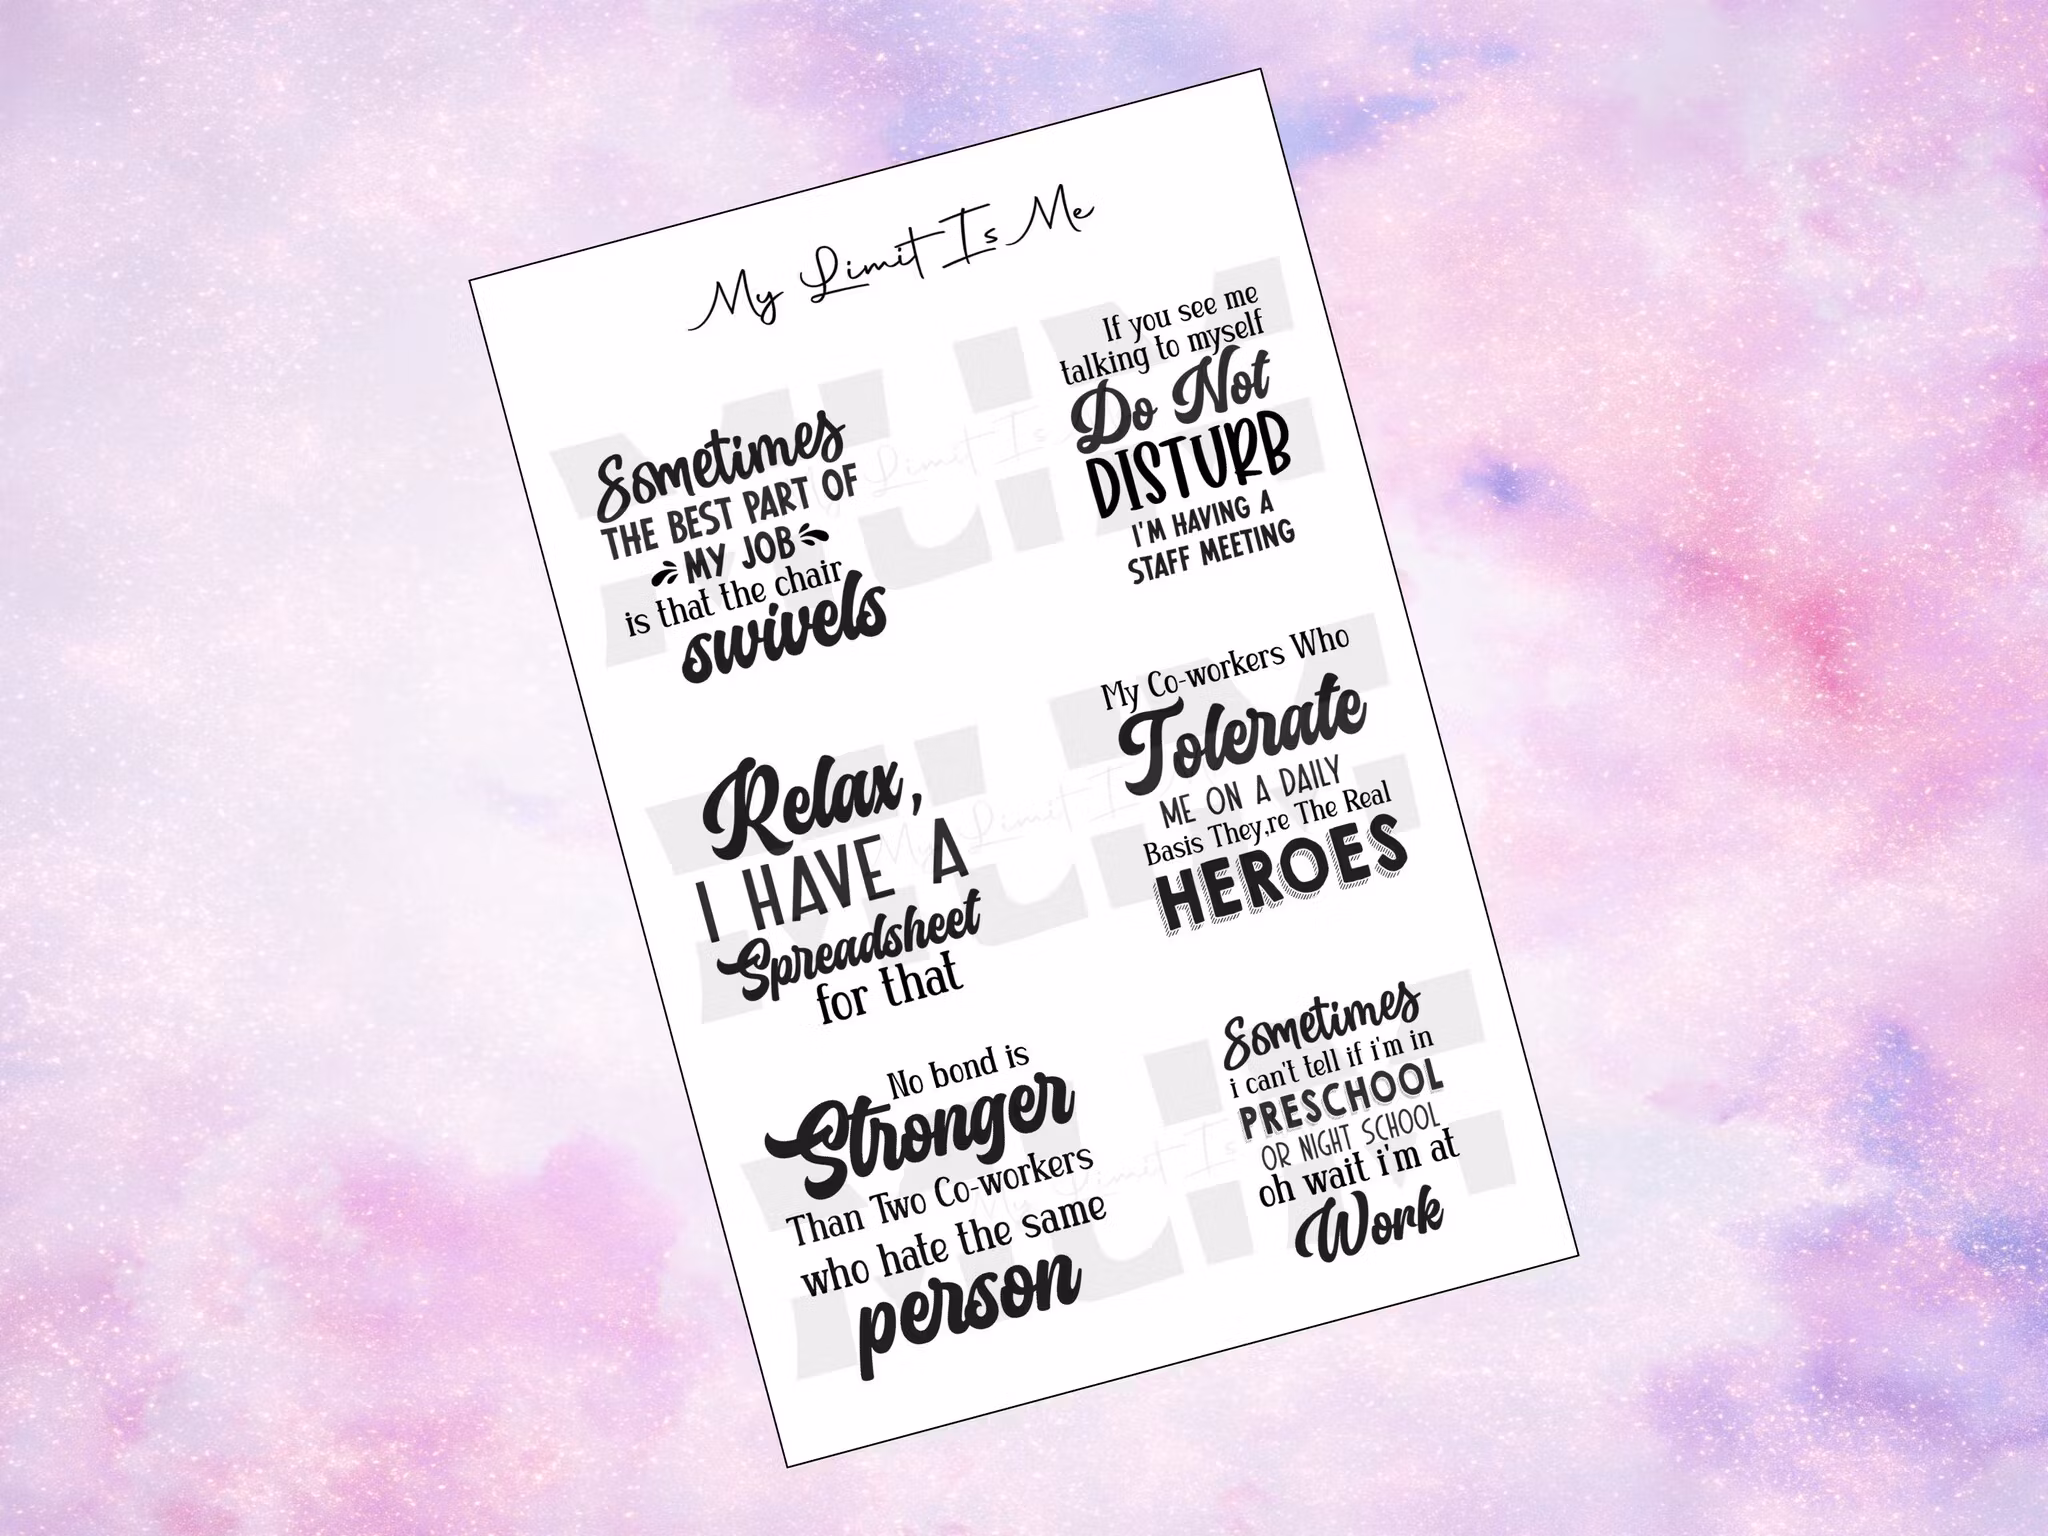 My Limit Is Me
Sometimes
THE BEST PART OF
MY JOB
is that the chair
swivels
If you see me
talking to myself
Do Not
DISTURB
I'M HAVING A
STAFF MEETING
Relax,
I HAVE A
Spreadsheet
for that
My Co-workers Who
Tolerate
ME ON A DAILY
Basis They,re The Real
HEROES
No bond is
Stronger
Than Two Co-workers
who hate the same
person
Sometimes
i can't tell if i'm in
PRESCHOOL
OR NIGHT SCHOOL
oh wait i'm at
Work
MLIM
My Limit Is Me
MLIM
My Limit Is Me
MLIM
My Limit Is Me